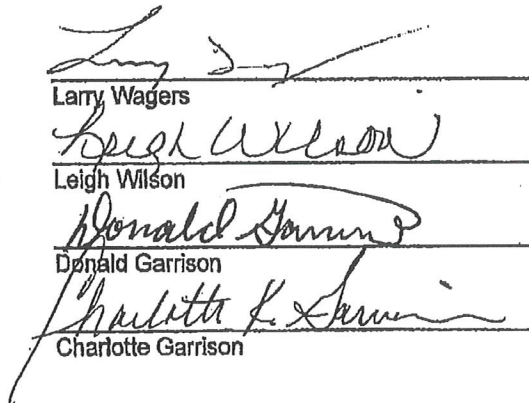 Larry Wagers
Leigh Wilson
Leigh Wilson
Donald Garrison
Donald Garrison
Charlotte K. Garrison
Charlotte Garrison